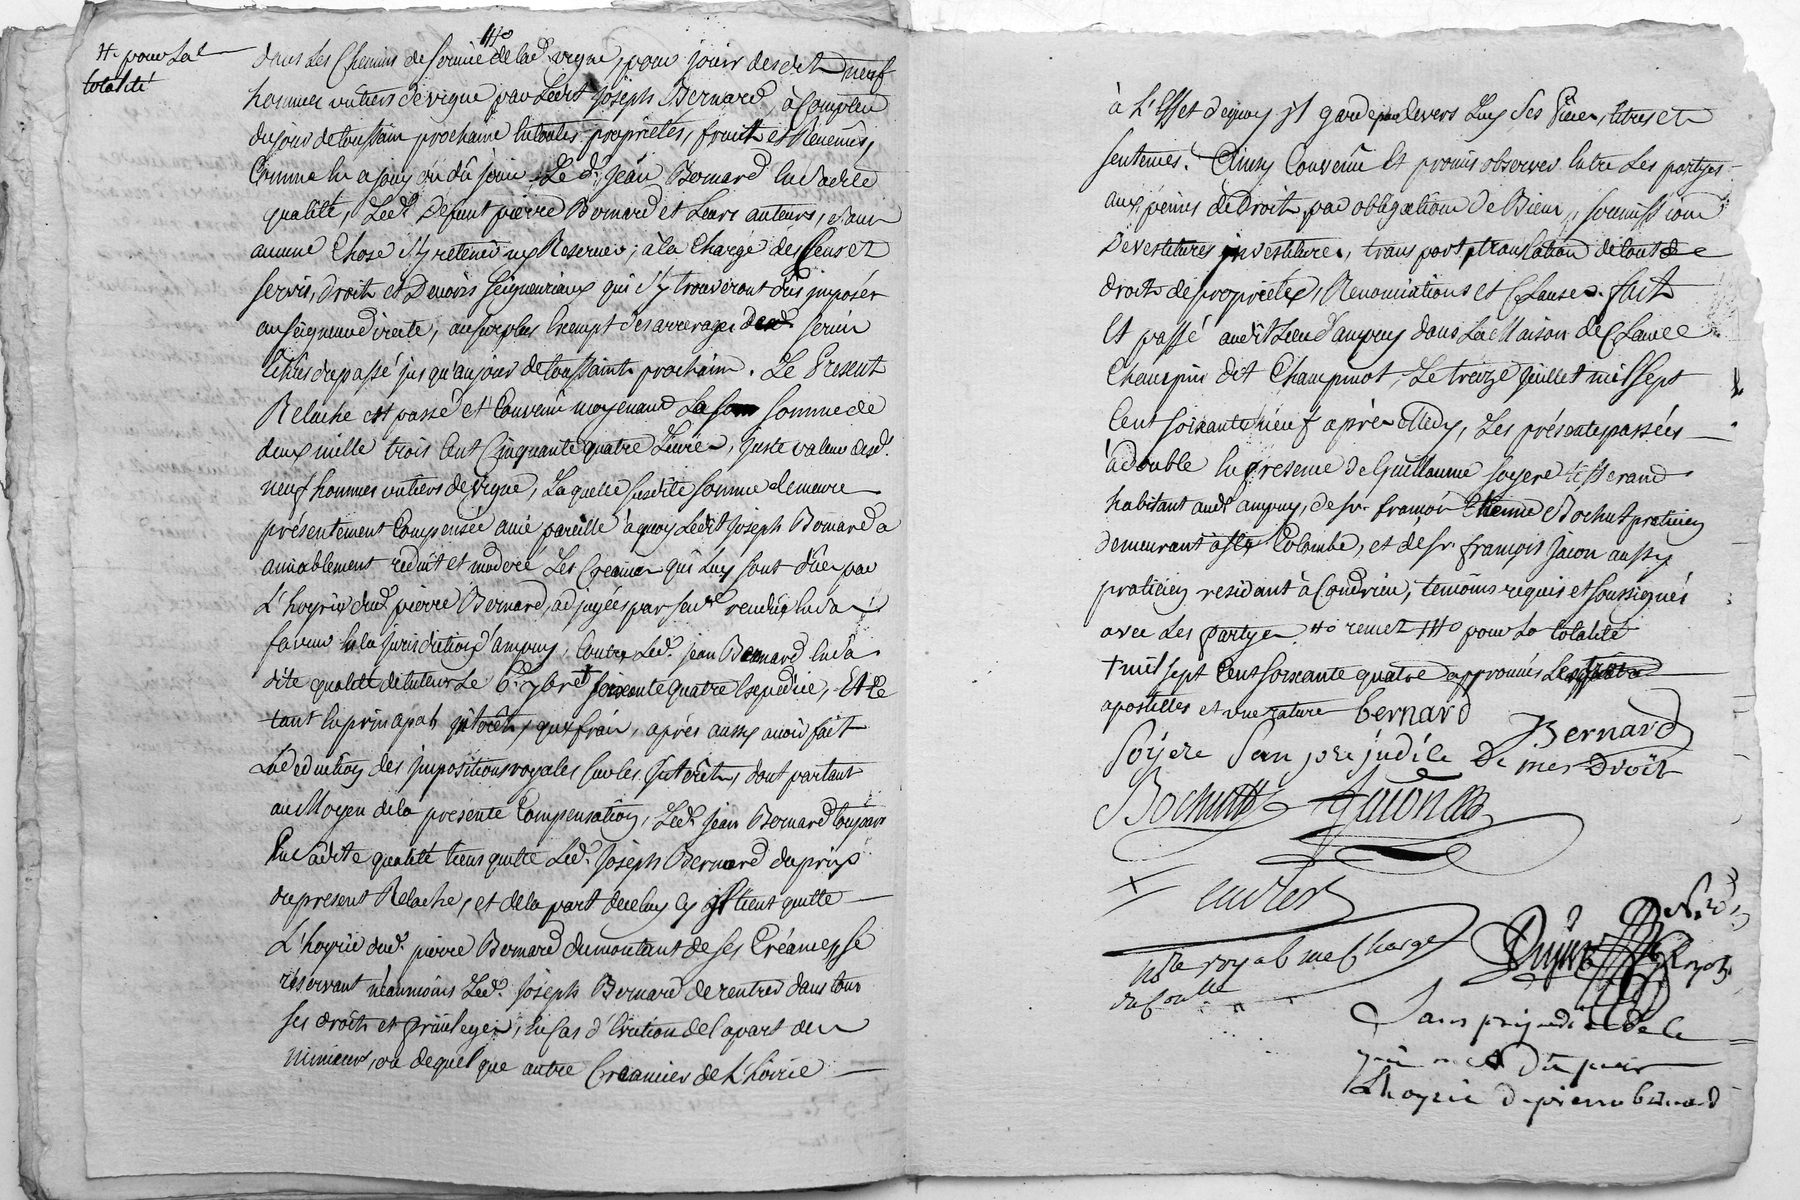 # pour la
totalité
dans les chemins de servie de lad. vigne, pour jouir desdit neuf
hommes entiers de vigne par ledit Joseph Bernard à Compter
du jour de toussain prochaine en toutes proprietés, fruits et Revenus,
Comme en a jouy ou dû jouir Le d. Jean Bernard en sadite
qualité, Led. Défunt pierre Bernard et Leurs auteurs, sans
aucune Chose s'y retenir ny Reserver, à la Charge des Cens et
servis, droits et Devoirs seigneuriaux qui s'y trouveront dus imposés
au seigneur directe, au surplus Exempt des arrerages desd. servis
Echus du passé jusqu'au jour de toussaints prochain. Le Present
Relache est passé et Convenu moyenant La somme de
deux mille trois Cent Cinquante quatre Livres, juste valeur desd.
neuf hommes entiers de vigne, Laquelle susdite somme demeure
présentement Compensée avec pareille à quoy Ledit Joseph Bernard a
amiablement reduit et moderé Les Creances qui Luy sont dûes par
L'hoyrie dud. pierre Bernard, adjugées par sen.ce rendûe en sa
faveur en la jurisdiction d'ampuy, Contre Led. jean Bernard en sa
dite qualité de tuteur Le 6e 7bre † soixante quatre Expediée, Et Ce
tant en principal, intérêts, que frais, après aussy avoir fait
La Deduction des jmpositions royales sur les Jntérêts, dont partant
au Moyen de la présente Compensation, Led. Jean Bernard
En sadite qualité tient quitte Led. Joseph Bernard du prix
du present Relache, et de la part de celuy cy jl tient quitte
L'hoyrie dud. pierre Bernard du montant de ses Créances se
réservant néanmoins Led. Joseph Bernard de rentrer dans tous
ses droits et privileges, en Cas d'Eviction de la part des
mineurs, ou de quelque autre Creancier de L'hoirie
à L'Effet de quoy jl garde par devers Luy ses Pieces, titres et
sentences. Ainsy Convenu Et promis observer Entre Les partyes
aux peines de Droit, par obligation de Biens, soumissions
Devestitures investitures, transport translation de tout
droits de propriétés, Renonciations et Clauses. fait
Et passé audit Lieu d'ampuy dans La Maison de Claude
Champin dit Champinot, Le treize Juillet mil sept
Cent soixante neuf après Midy, Les présente passées
à double En presence de Guillaume soyere tisserand
habitant aud. ampuy, de sr. françois Etienne Bochut praticien
demeurant à ste Colombe, et de sr. françois jacon aussy
praticien residant à Condrieu, temoins requis et soussignés
avec Les partyes # remez pour La totalité
† mil sept Cent soixante quatre approuvés Les
apostilles et une rature bernard
Bernard
Soyere San prejudice De mes Droit
Bochut Jacon
not.re royal me Charge
du Contrôle
Sans prejudice de Ce
qui mes Du par
Lhoyrie de pierre bernard